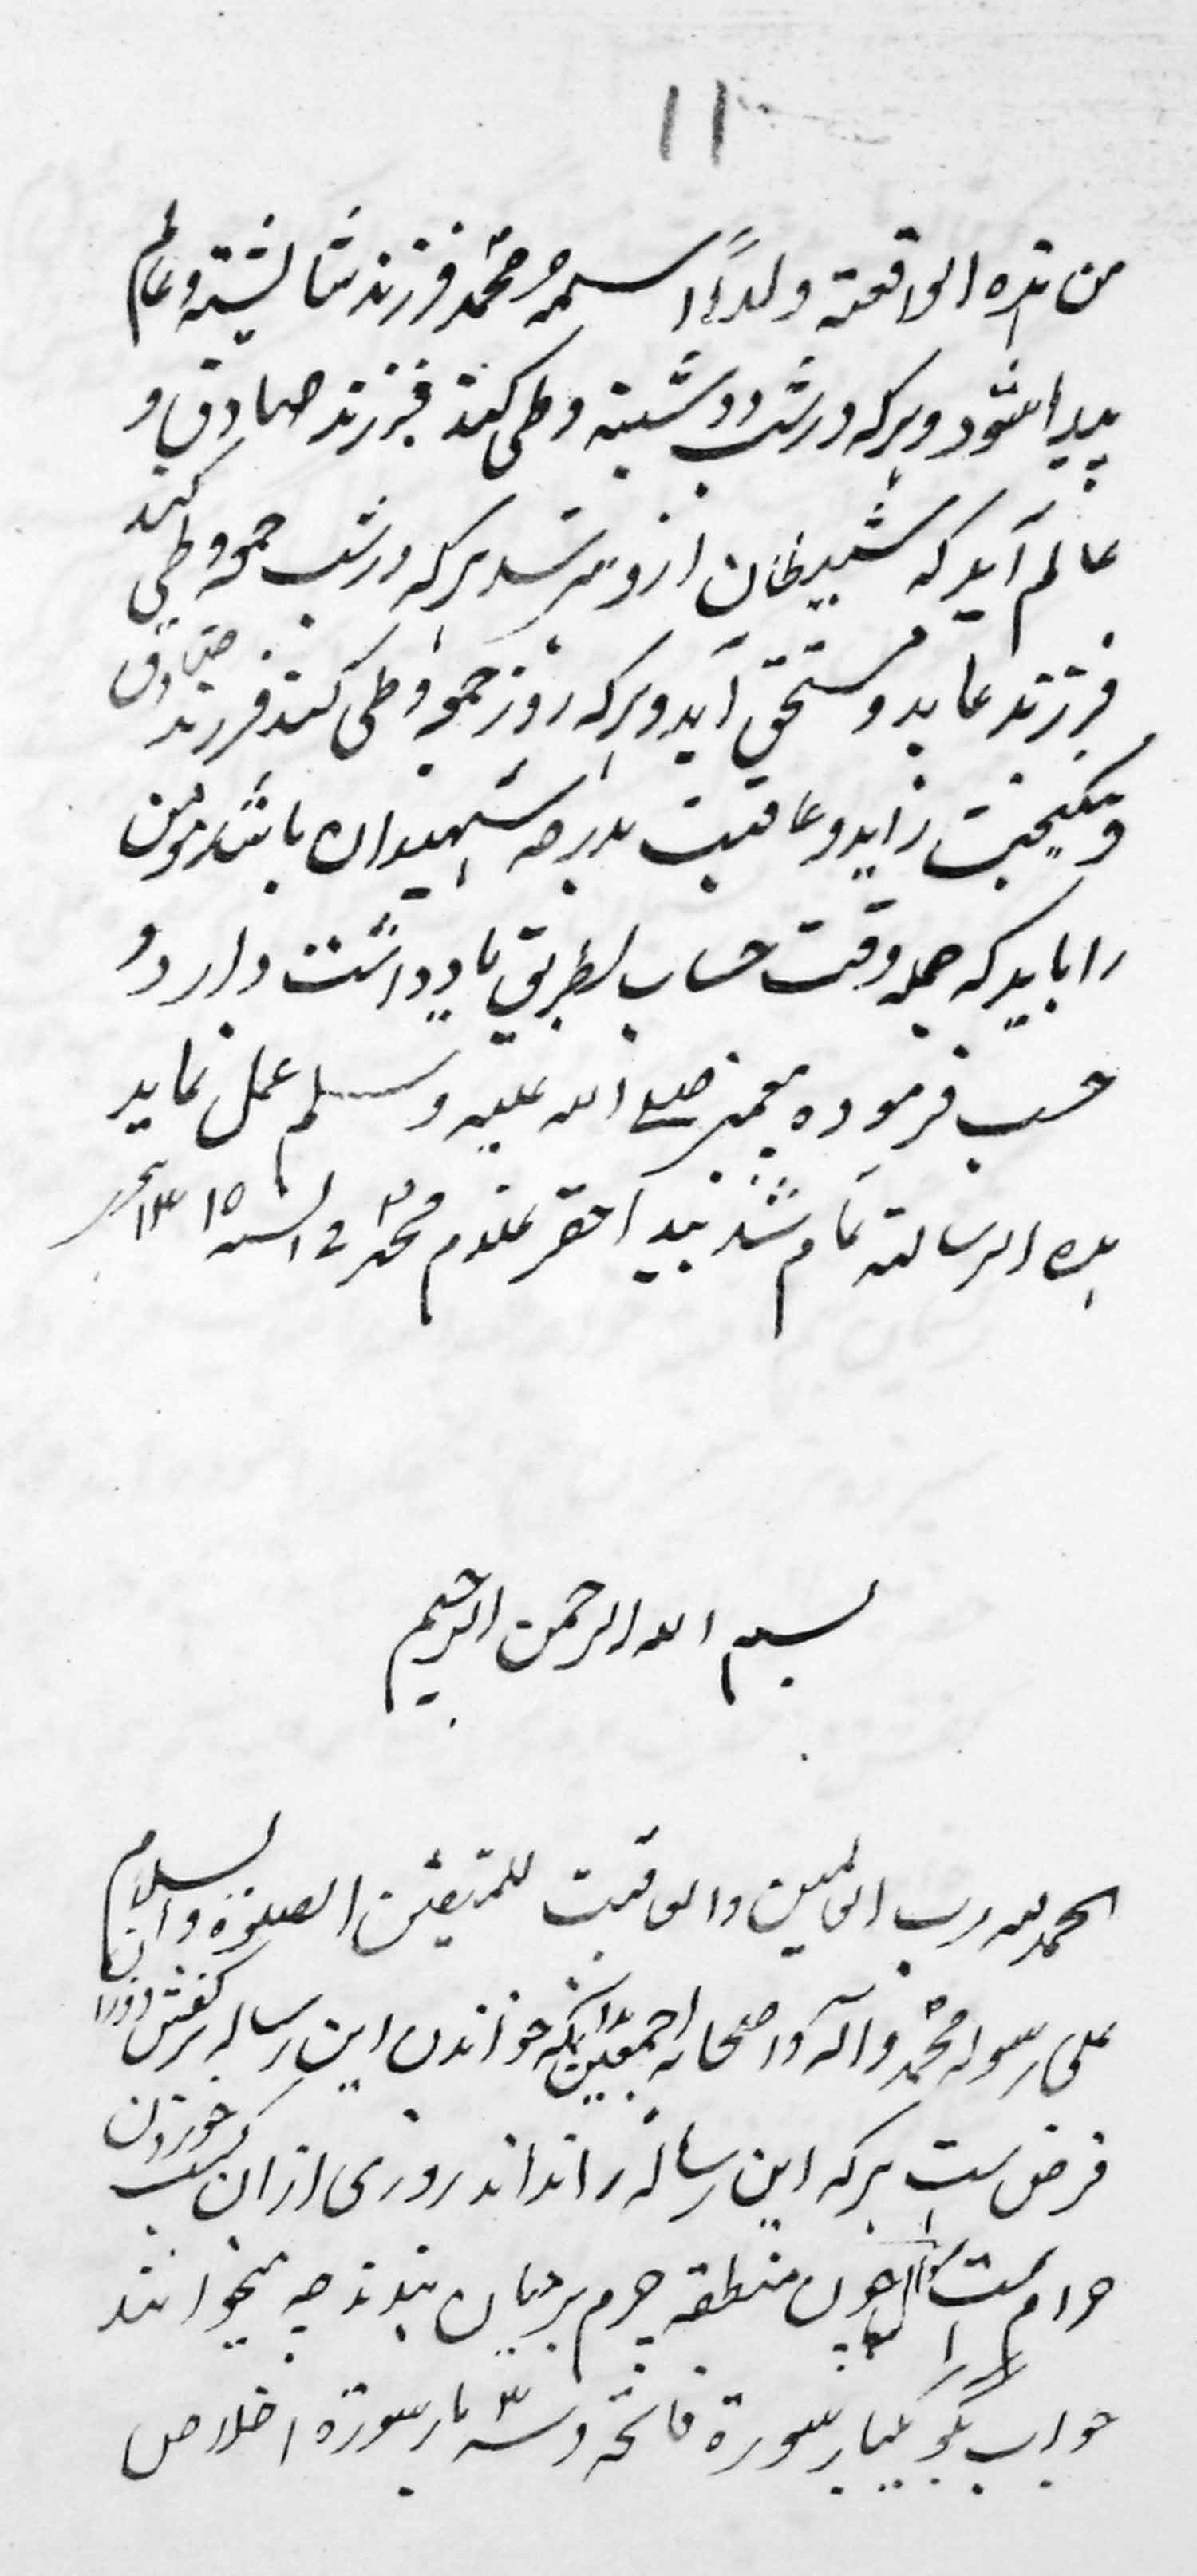 ۱۱
من هذه الواقعة ولداً اسمه محمد فرزند شائسته و عالم
پیدا شود و هرکه در شب دوشنبه وطی کند فرزند صادق و
عالم آید که شیطان ازو ترسد هرکه در شب جمعه وطی کند
فرزند عابد و مستحق آید و هرکه روز جمعه وطی کند فرزند صادق
و نیکبخت زاید و عاقبت بدرجه شهیدان باشد مومن
را باید که جمله وقت حساب بطریق یادداشت دارد و
حسب فرموده پیغمبر صلے الله علیه وسلم عمل نماید
هذه الرساله تمام شد بید احقر غلام محمد فی السنه ۱۳۱۵
بسم الله الرحمن الرحیم
الحمد لله رب العالمین والعاقبت للمتقین الصلوة والسلام
علی رسوله محمد وآله واصحابه اجمعین بدانکه خواندن این رساله بر کفش دوزان
فرض ست هرکه این رساله را نداند روزی ازان کسب خوردن
حرام ست سوال چون منطقه چرم بر میان بندند چه میخوانند
جواب بگو یکبار سورة فاتحه و سه بار سورة اخلاص